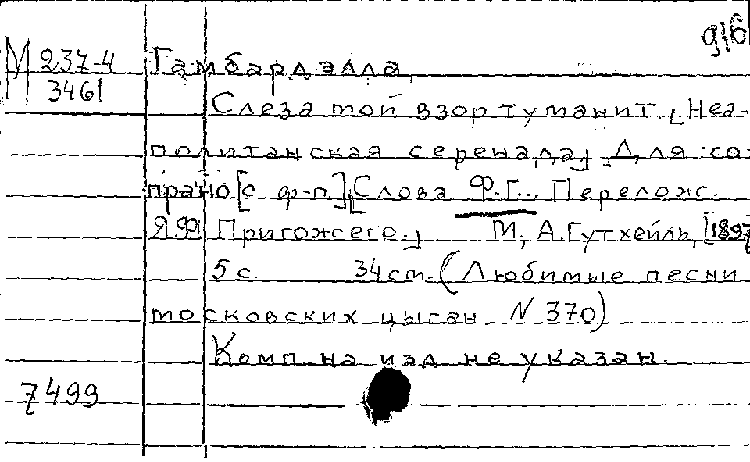 д/б
М 237-4 Гамбарделла,
3461 Слеза твой взор туманит. [Неа-
политанская серенада] Для со-
прано [с ф-п.] [Слова Ф.Г... Перелож.
Я.Ф. Пригожего.] М., А. Гутхейль, [1897]
5 с. 34 см. (Любимые песни
московских цыган N 370)
Комп. на изд. не указан.
7499